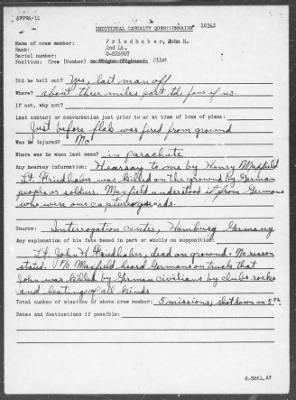 AFPPA-11
INDIVIDUAL CASUALTY QUESTIONNAIRE 10342
Name of crew member: Friedhaber, John H.
Rank: 2nd Lt.
Serial number:
Position: Crew (Number) Pilot
Did he bail out? Yes, last man off
Where? about three miles past the four of us.
If not, why not?
Last contact or conversation just prior to or at time of loss of plane:
Just before flak was fired from ground
Was he injured? No
Where was he when last seen? in parachute
Any hearsay information: Hearsay to me by Henry Maxfield
Lt. Friedhaber was killed on the ground by German
people or soldiers. Maxfield understood it from Germans
who were our capture guards.
Source: Interrogation center, Hamburg Germany
Any explanation of his fate based in part or wholly on supposition:
Lt. John H Friedhaber, dead on ground. No reason
stated. F/O Maxfield heard Germans on trucks that
John was killed by German civilians by clubs rocks
and beating of all kinds
Total number of missions of above crew member: 5 missions, shot down on 5th
Dates and destinations if possible:
6-3861,AF